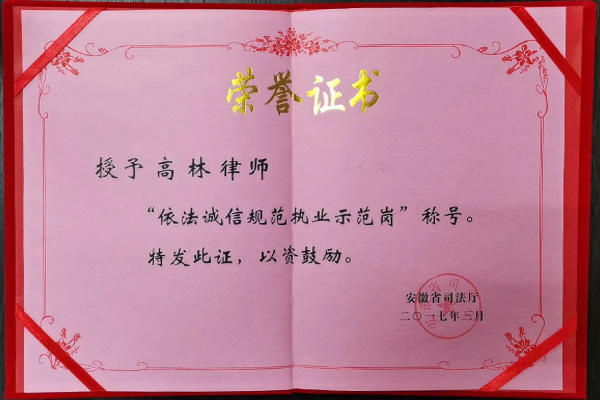 荣誉证书
授予高林律师
“依法诚信规范执业示范岗”称号。
特发此证，以资鼓励。
安徽省司法厅
二〇一七年三月